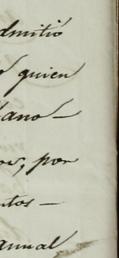 dmitió
quien
ano —
or, por
tos —
annual